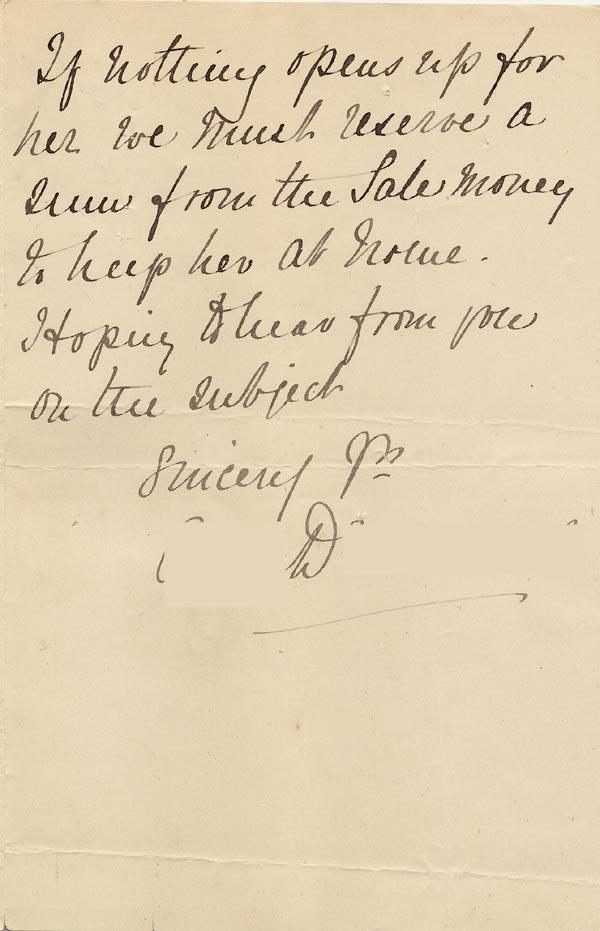 If nothing opens up for
her we must reserve a
sum from the Sale Money
to keep her at home.
Hoping to hear from you
on the subject
Sincerely Yrs
D